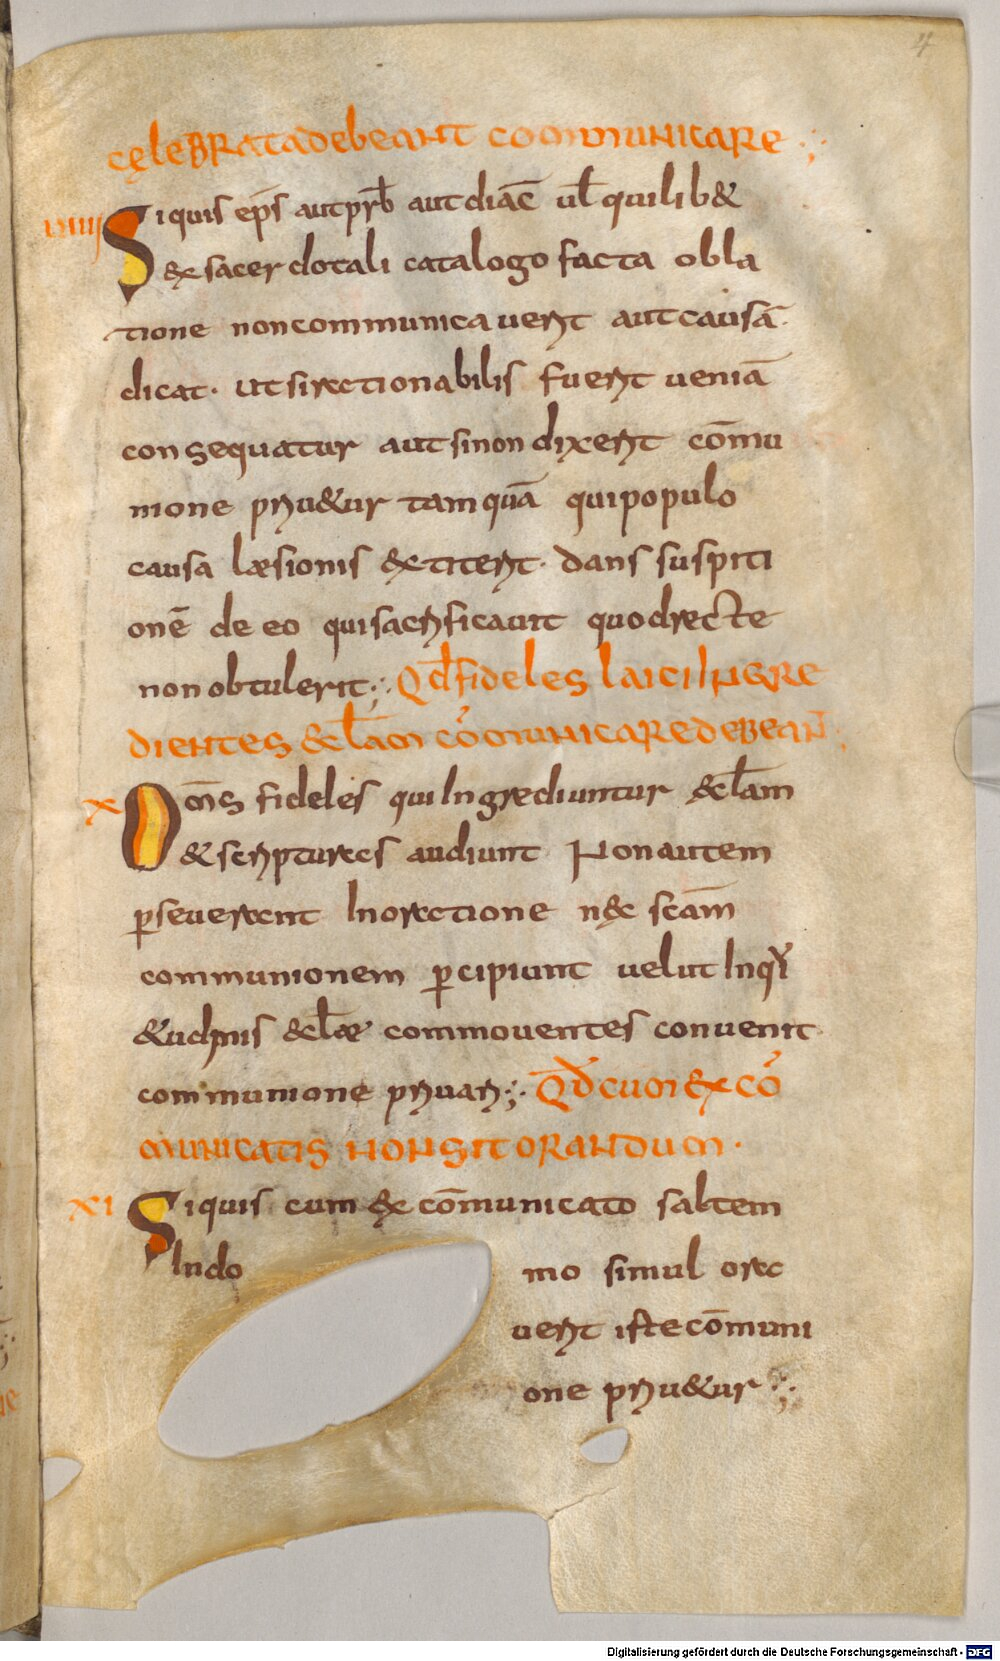 4
cęlebrata debeant communicare·;
viiii Siquis eps̄ aut prb̄ aut diac̄ ul̄ quilib&
&x sacerdotali catalogo facta obla
tione non communicauerit aut causā
dicat· ut si rationabilis fuerit ueniā
consequatur aut si non dixerit cōmu
nione priu&ur tamquā qui populo
causa læsionis &xtiterit· dans suspiti
onē de eo qui sacrificauit quod recte
non obtulerit;· Qd̄ fideles laici ingre
dientes &cl̄am cōmunicare debeant;
x Om̄s fideles qui ingrediuntur &cl̄am
& scripturas audiunt Non autem
p̱seuerant in oratione n&c sc̄am
communionem p̱cipiunt uelut inqi
&udinis &cl̄æ commouentes conuenit
communione priuari;· Qd̄ cum &x cō
municatis non sit orandum·
xi Siquis cum &x cōmunicato saltem
in domo simul ora
uerit iste cōmuni
one priu&ur·;·
Digitalisierung gefördert durch die Deutsche Forschungsgemeinschaft - DFG